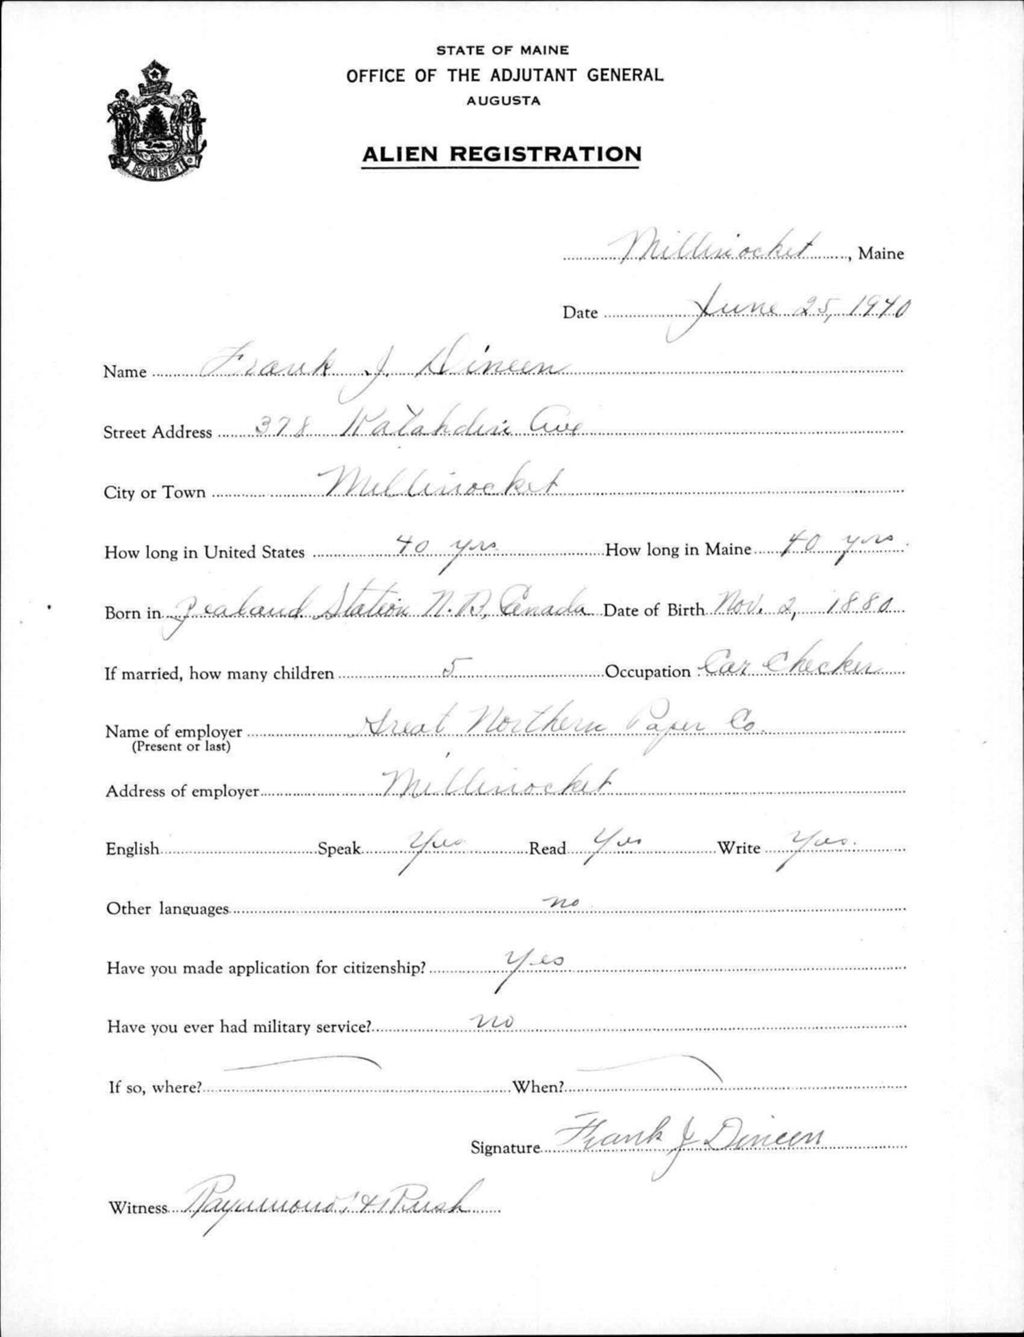 STATE OF MAINE
OFFICE OF THE ADJUTANT GENERAL
AUGUSTA
MAINE
ALIEN REGISTRATION
Millinocket, Maine
Date June 25, 1940
Name Frank J. Dineen
Street Address 378 Katahdin Ave
City or Town Millinocket
How long in United States 40 yrs How long in Maine 40 yrs
Born in Zealand Station N.B, Canada Date of Birth Nov. 2, 1880
If married, how many children 5 Occupation Car Checker
Name of employer Great Northern Paper Co.
(Present or last)
Address of employer Millinocket
English Speak Yes Read Yes Write Yes.
Other languages no
Have you made application for citizenship? Yes
Have you ever had military service? no
If so, where? When?
Signature Frank J Dineen
Witness Raymond H Rush